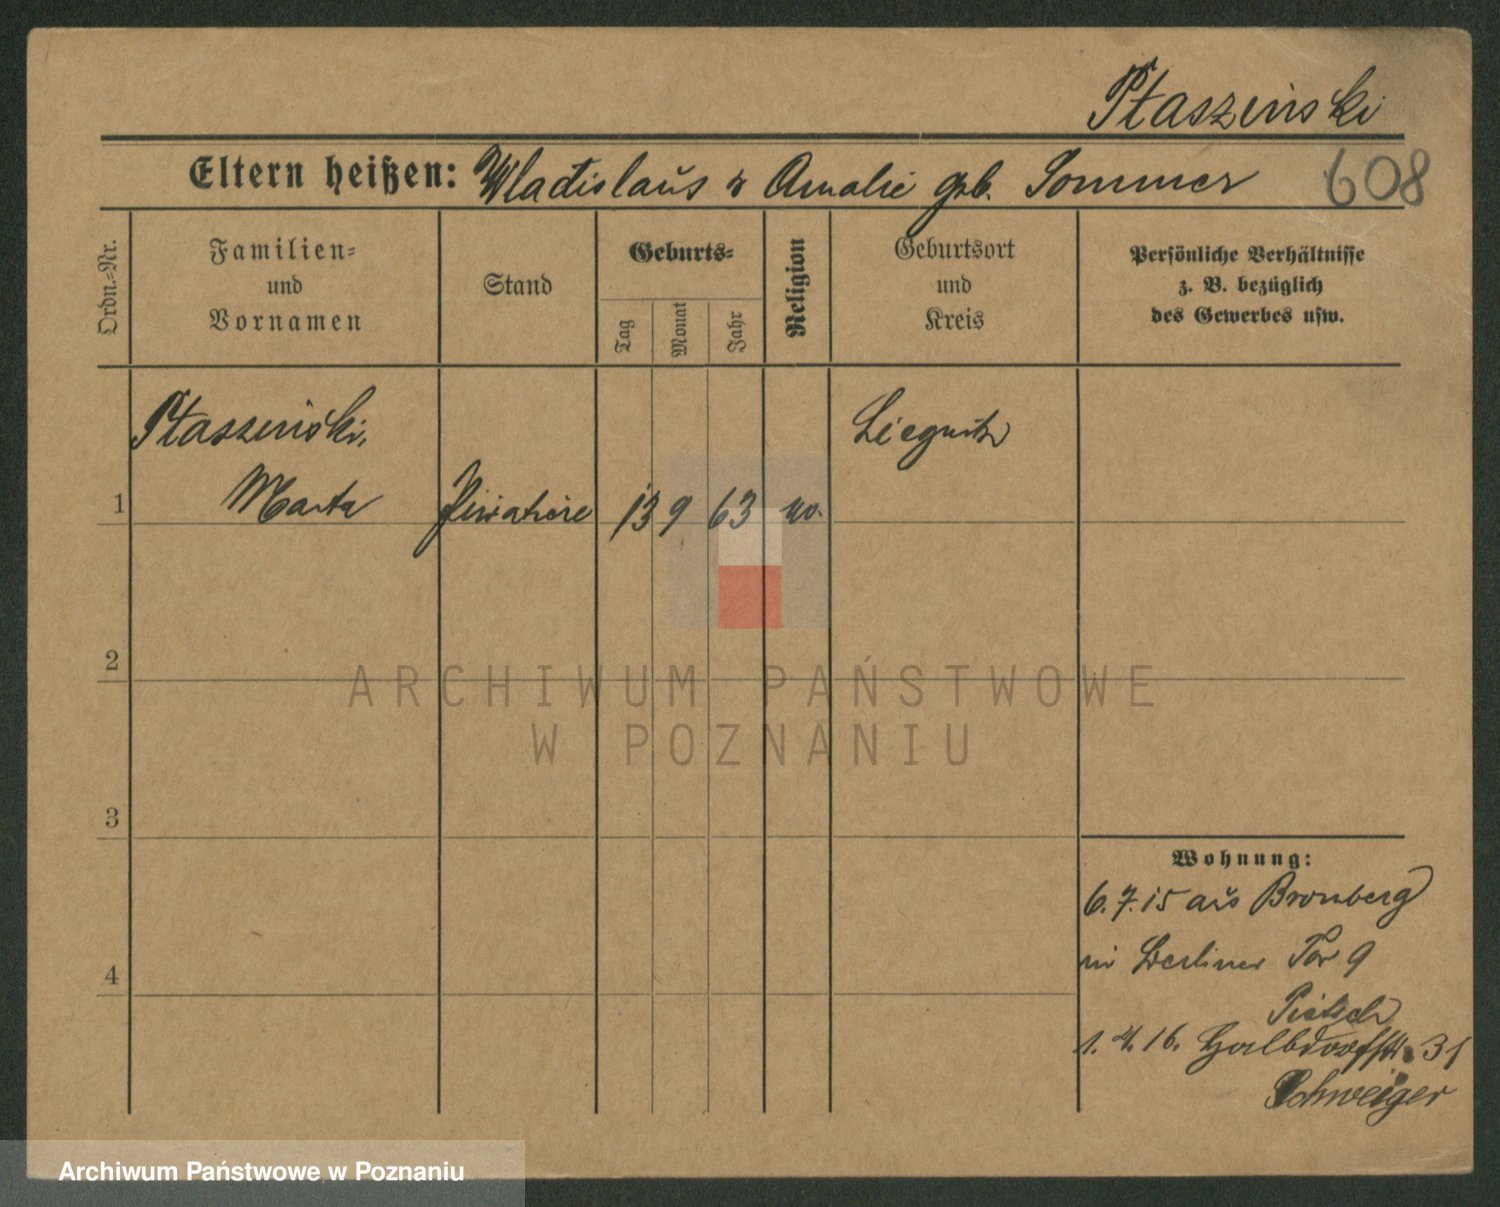 Ptaszinski
Eltern heißen: Wladislaus & Amalie geb. Sommer 608
Ordn.=Nr.
Familien=
und
Vornamen
Stand
Geburts=
Tag
Monat
Jahr
Religion
Geburtsort
und
Kreis
Persönliche Verhältnisse
z. B. bezüglich
des Gewerbes usw.
Ptaszinski, Liegnitz
1 Marta Privatiere 13 9 63
2
3
4
Wohnung:
6.7.15 aus Bromberg
in Berliner Tor 9
Pietsch
1.4.16. Halbdorfstr. 31
Schweiger
ARCHIWUM PAŃSTWOWE
W POZNANIU
Archiwum Państwowe w Poznaniu